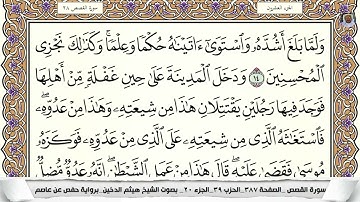 الجزء العشرون
سورة القصص ٢٨
وَلَمَّا بَلَغَ أَشُدَّهُۥ وَٱسْتَوَىٰٓ ءَاتَيْنَٰهُ حُكْمًا وَعِلْمًا ۚ وَكَذَٰلِكَ نَجْزِى
ٱلْمُحْسِنِينَ ١٤ وَدَخَلَ ٱلْمَدِينَةَ عَلَىٰ حِينِ غَفْلَةٍ مِّنْ أَهْلِهَا
فَوَجَدَ فِيهَا رَجُلَيْنِ يَقْتَتِلَانِ هَٰذَا مِن شِيعَتِهِۦ وَهَٰذَا مِنْ عَدُوِّهِۦ ۖ
فَٱسْتَغَٰثَهُ ٱلَّذِى مِن شِيعَتِهِۦ عَلَى ٱلَّذِى مِنْ عَدُوِّهِۦ فَوَكَزَهُۥ
مُوسَىٰ فَقَضَىٰ عَلَيْهِ ۖ قَالَ هَٰذَا مِنْ عَمَلِ ٱلشَّيْطَٰنِ ۖ إِنَّهُۥ عَدُوٌّ مُّضِلٌّ
سورة القصص _الصفحة ٣٨٧_الحزب ٣٩_الجزء ٢٠_ بصوت الشيخ هيثم الدخين_ برواية حفص عن عاصم